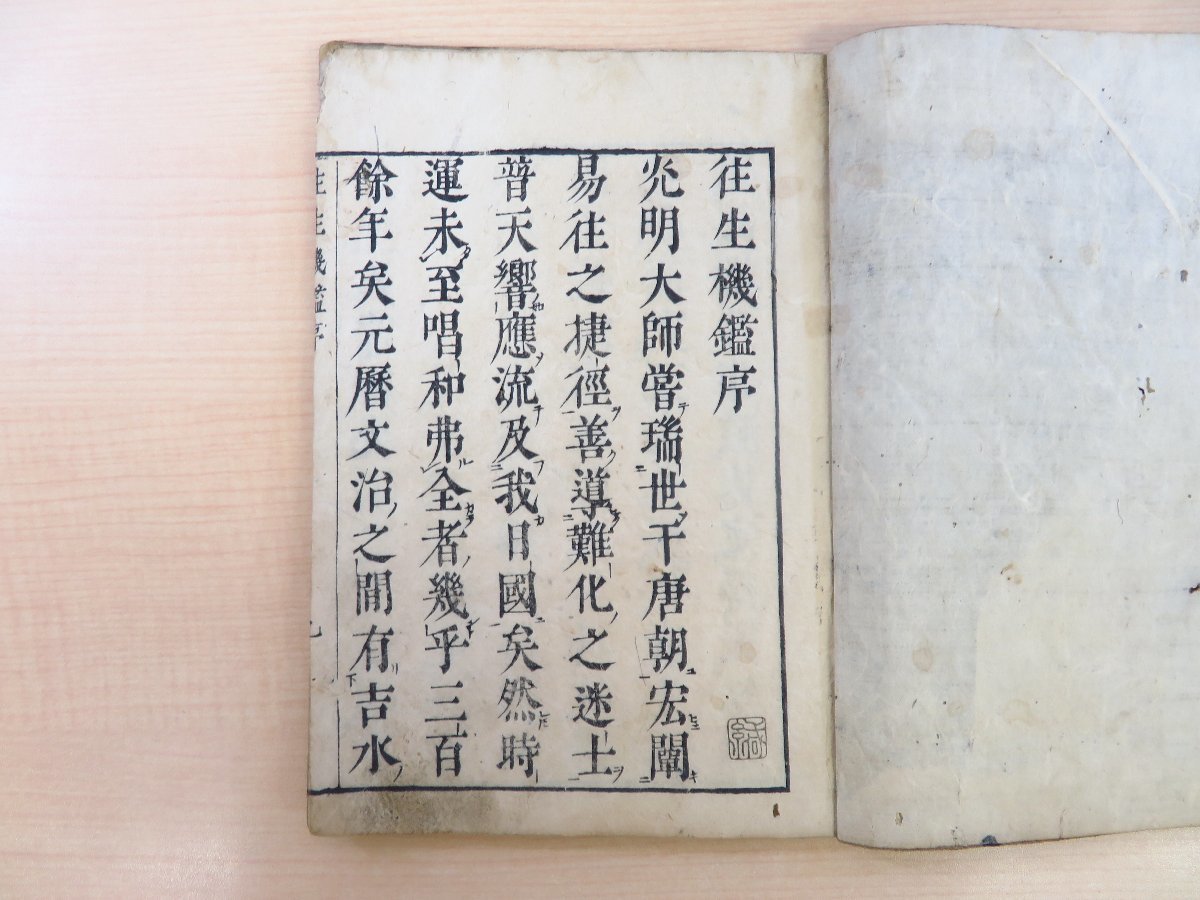 往生機鑑序
光明大師嘗瑞世于唐朝宏闡
易往之捷徑善導難化之迷士
普天響應流及我日國矣然時
運未至唱和弗全者幾乎三百
餘年矣元曆文治之間有吉水
往生機鑑序